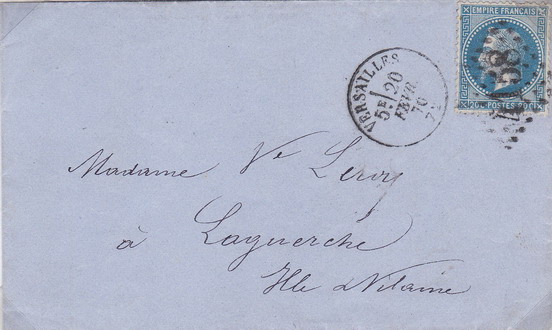 EMPIRE FRANÇAIS
20 C POSTES 20 C
VERSAILLES
5E
20
FEVR
70
Madame Ve Leroy
à Laguerche
Ille & Vilaine